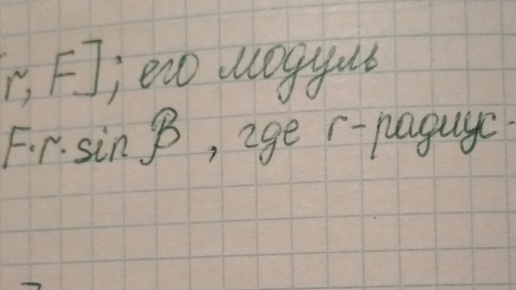 r, F]; его модуль
F·r·sin β, где r-радиус-